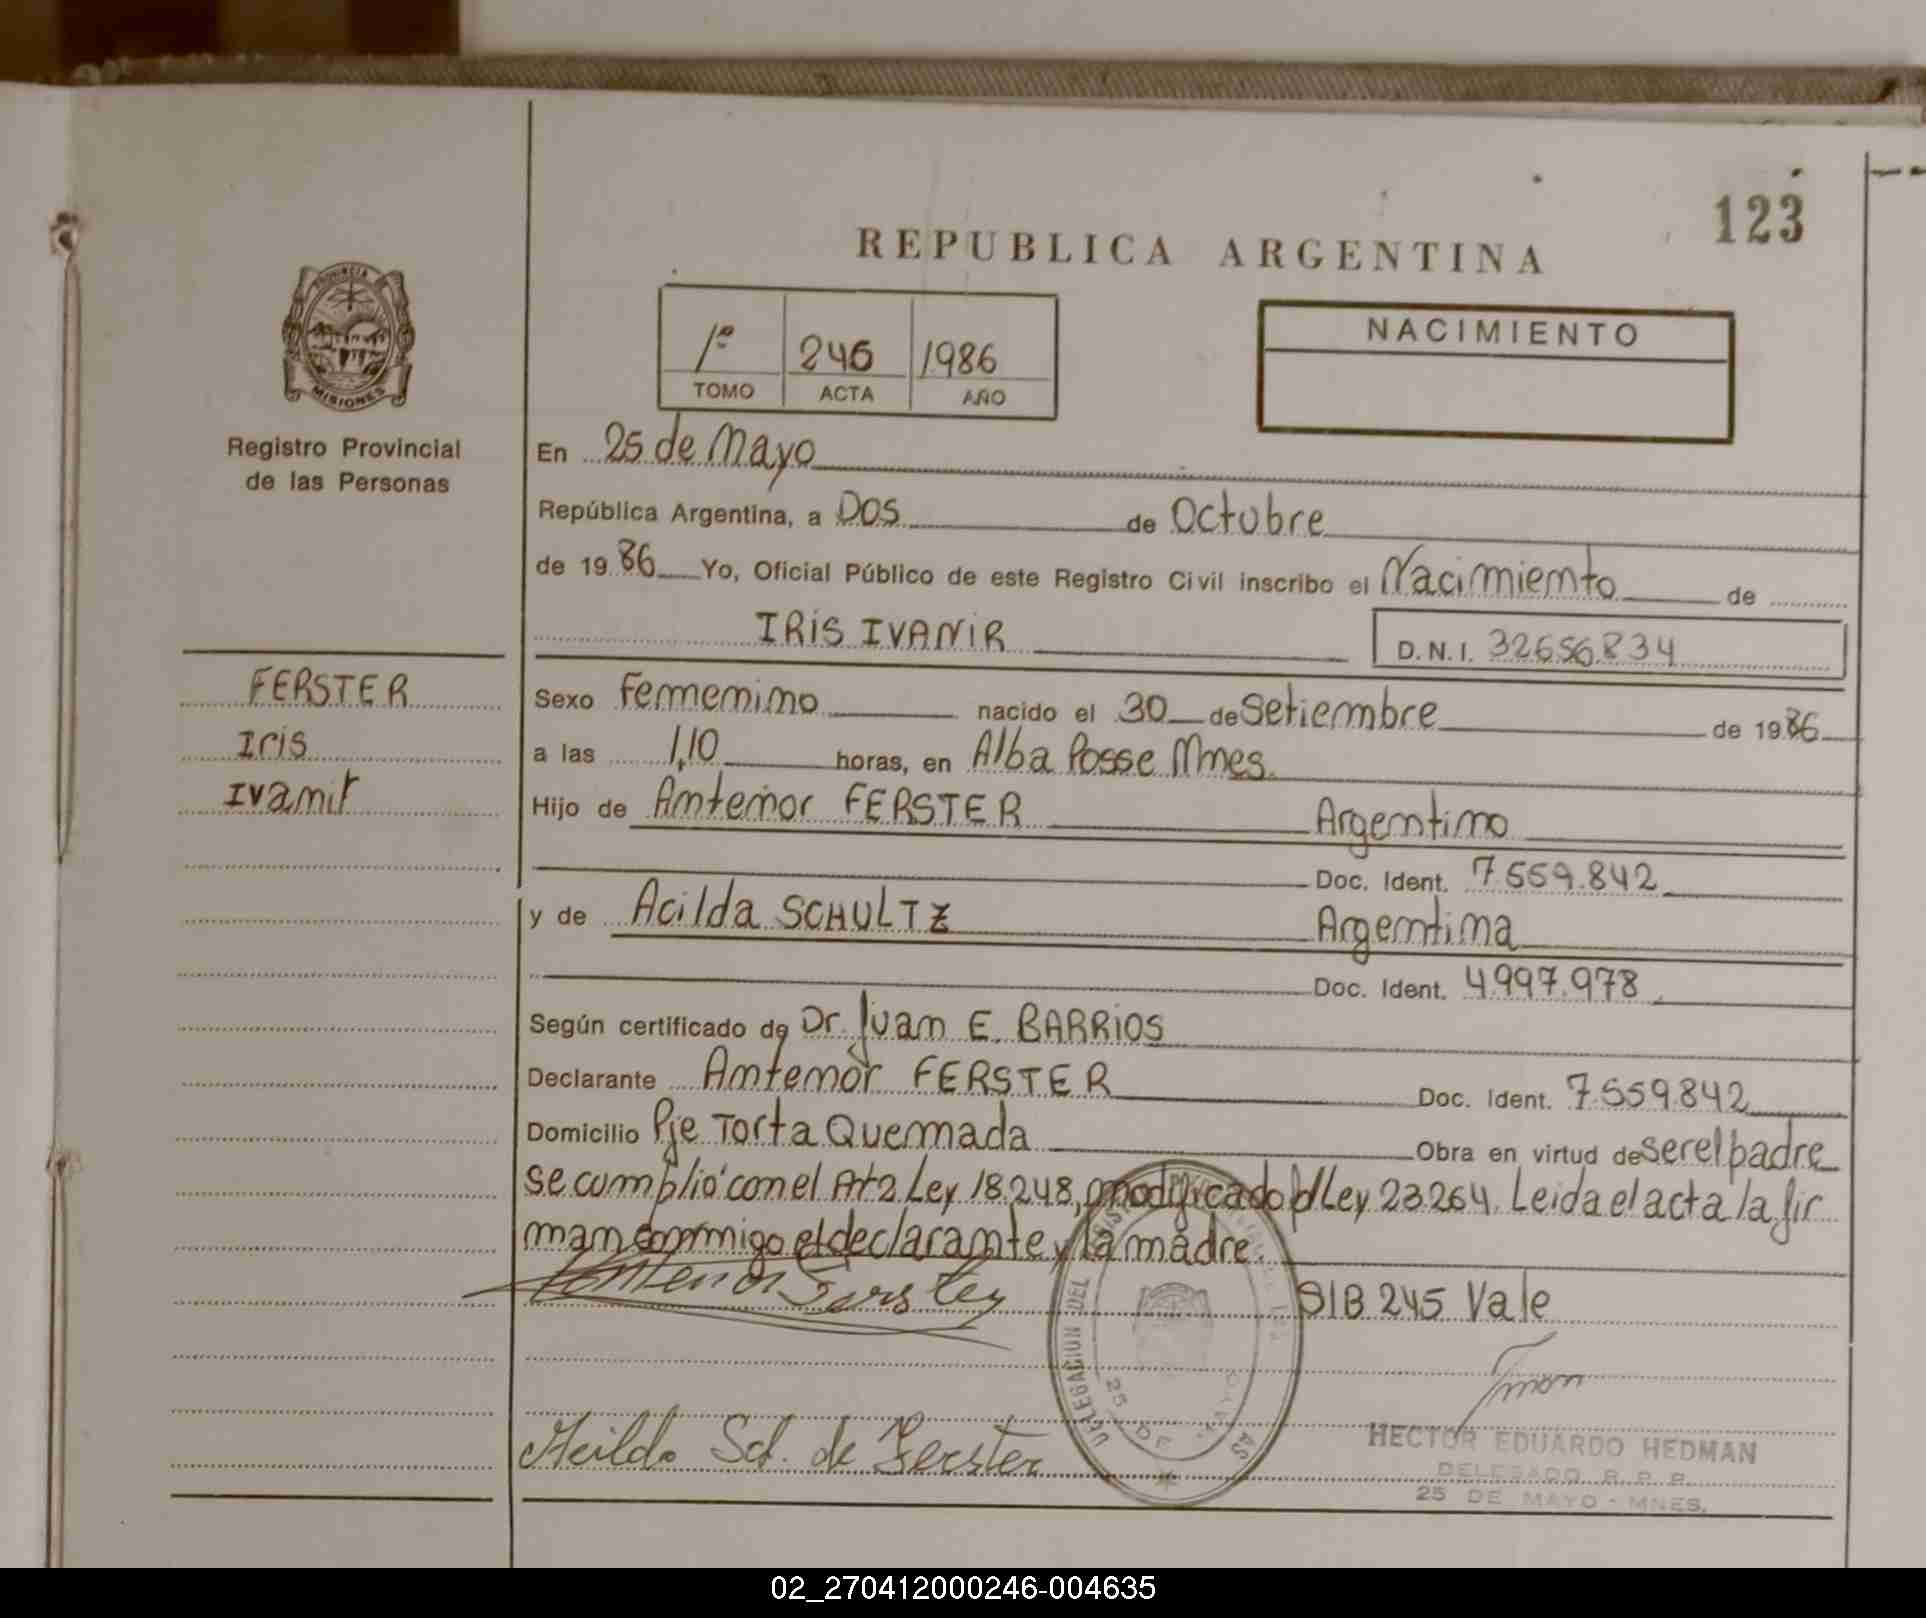 123
REPUBLICA ARGENTINA
PROVINCIA DE
MISIONES
Registro Provincial
de las Personas
1º 246 1986
TOMO ACTA AÑO
NACIMIENTO
En 25 de Mayo
República Argentina, a DOS de Octubre
de 1986 Yo, Oficial Público de este Registro Civil inscribo el Nacimiento de
IRIS IVANIR
D.N.I. 32656834
FERSTER
Iris
Ivanir
Sexo Femenino nacido el 30 de Setiembre de 1986
a las 1,10 horas, en Alba Posse Mnes.
Hijo de Antenor FERSTER Argentino
Doc. Ident. 7.559.842
y de Acilda SCHULTZ Argentina
Doc. Ident. 4.997.978
Según certificado de Dr. Juan E. BARRIOS
Declarante Antenor FERSTER Doc. Ident. 7.559.842
Domicilio Pje Torta Quemada Obra en virtud de ser el padre
se cumplió con el Art 2 Ley 18.248, modificado p/Ley 23.264. Leida el acta la fir
man conmigo el declarante y la madre.
S/B 245 Vale
Antenor Ferster
Acilda Sch. de Ferster
DELEGACION DEL
25 DE MAYO
HECTOR EDUARDO HEDMAN
DELEGADO R. P. P.
25 DE MAYO - MNES.
02_270412000246-004635